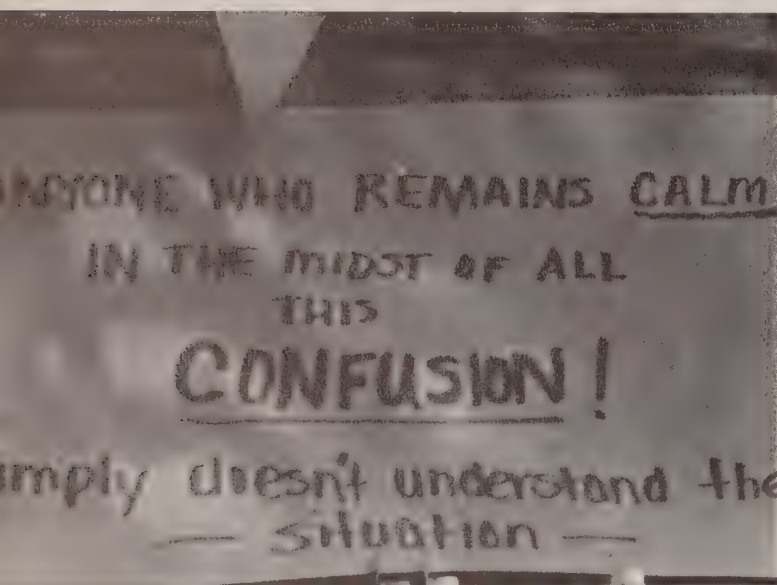 ANYONE WHO REMAINS CALM
IN THE MIDST OF ALL
THIS
CONFUSION!
imply doesn't understand the
— situation —